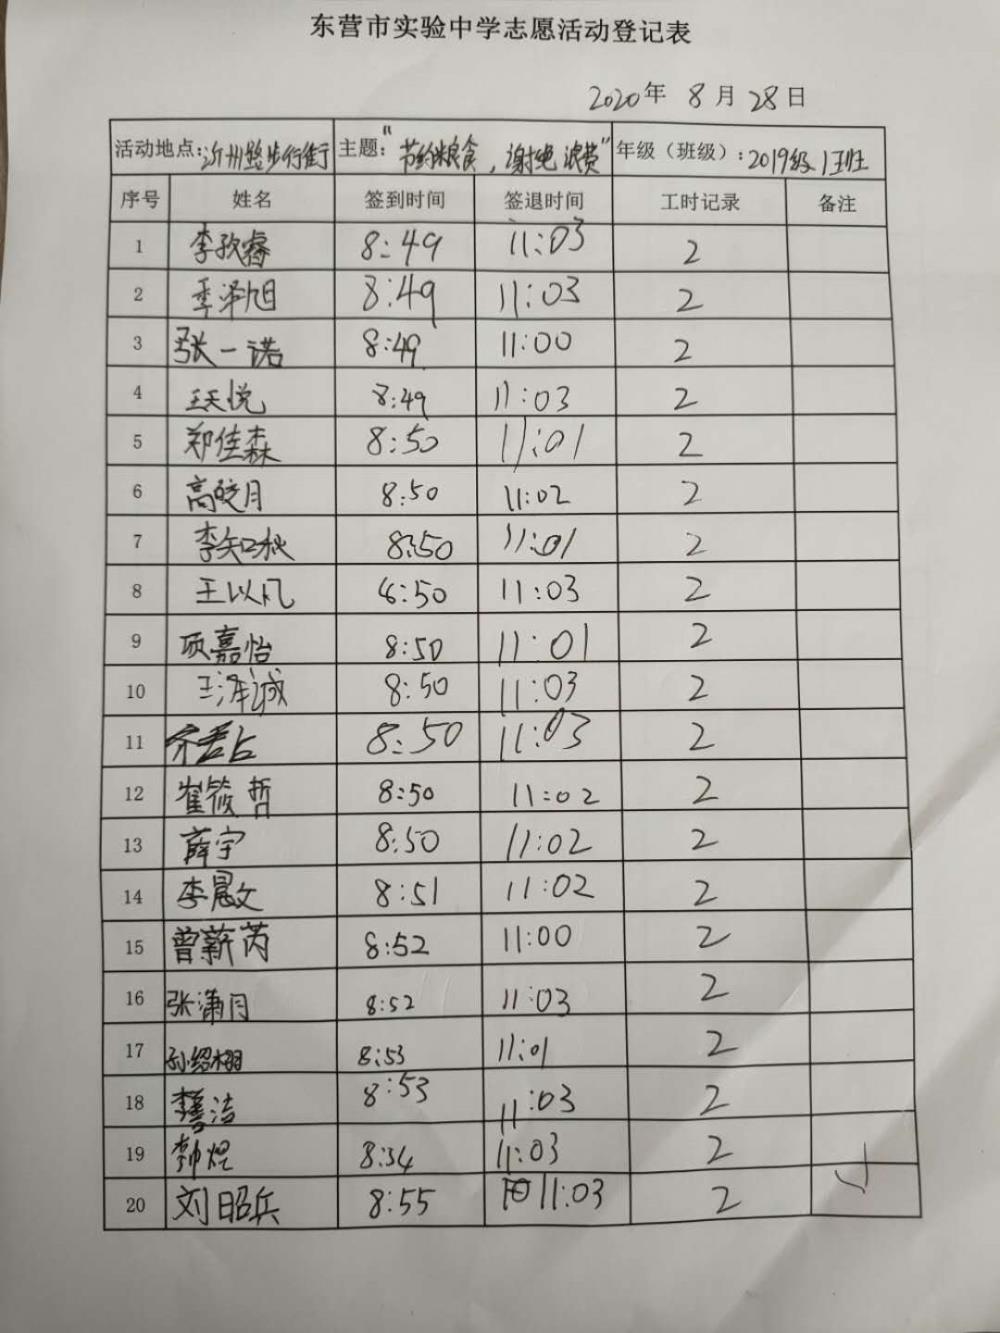 东营市实验中学志愿活动登记表
2020年 8月28日
活动地点:沂州路步行街 主题:"节约粮食,谢绝浪费" 年级(班级):2019级1班
序号 姓名 签到时间 签退时间 工时记录 备注
1 李孜睿 8:49 11:03 2
2 季泽旭 8:49 11:03 2
3 张一诺 8:49 11:00 2
4 王天悦 8:49 11:03 2
5 郑佳森 8:50 11:01 2
6 高皎月 8:50 11:02 2
7 李知秋 8:50 11:01 2
8 王以凡 8:50 11:03 2
9 项嘉怡 8:50 11:01 2
10 王泽诚 8:50 11:03 2
11 8:50 11:03 2
12 崔筱哲 8:50 11:02 2
13 薛宇 8:50 11:02 2
14 李晨文 8:51 11:02 2
15 曾薪芮 8:52 11:00 2
16 张潇月 8:52 11:03 2
17 孙绍栩 8:53 11:01 2
18 8:53 11:03 2
19 李帅煜 8:54 11:03 2
20 刘昭兵 8:55 11:03 2